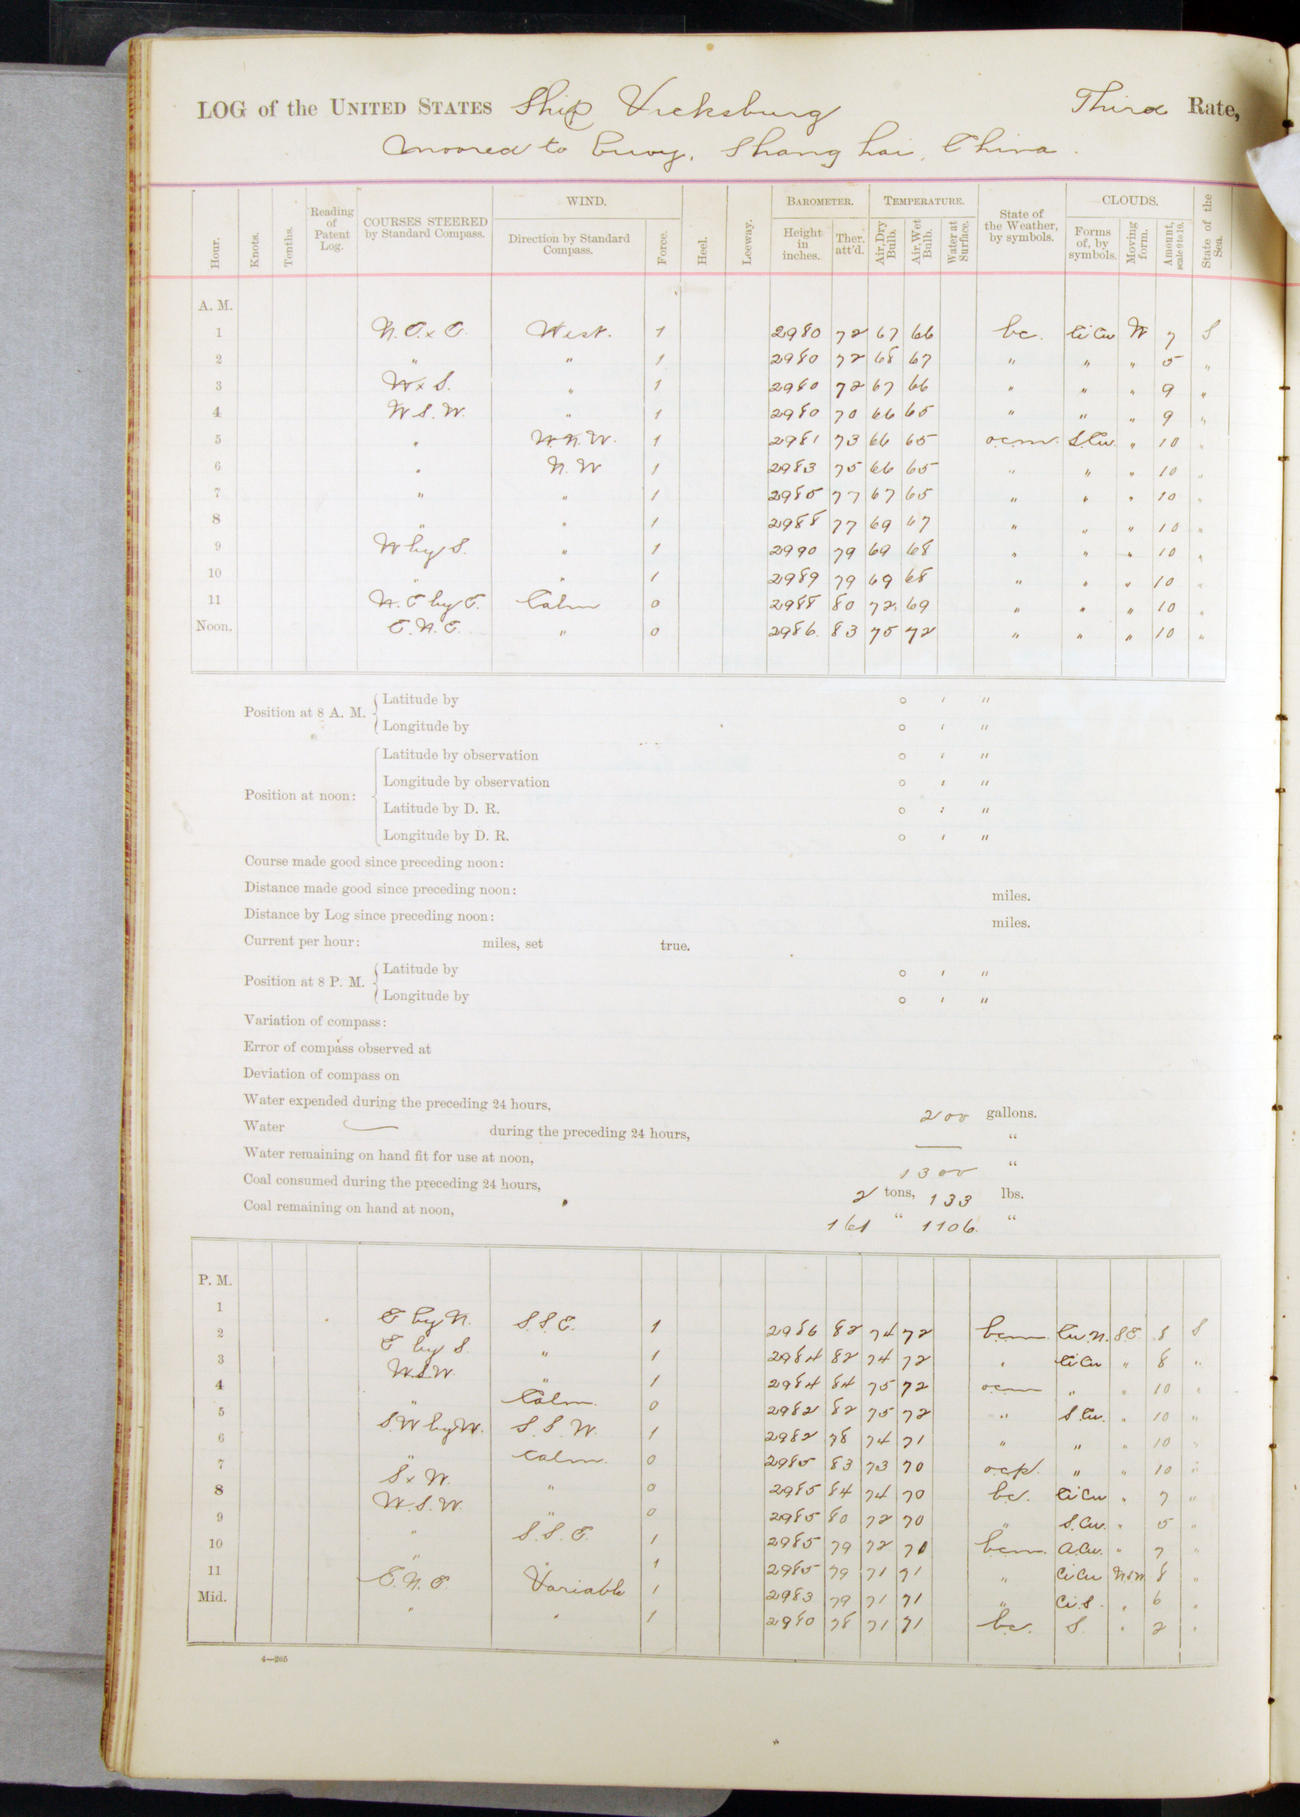 LOG of the UNITED STATES Ship Vicksburg Third Rate,
Moored to buoy, Shanghai, China.
Hour. Knots. Tenths. Reading of Patent Log. COURSES STEERED by Standard Compass. WIND. Direction by Standard Compass. Force. Heel. Leeway. BAROMETER. Height in inches. Ther. att'd. TEMPERATURE. Air, Dry Bulb. Air, Wet Bulb. Water at Surface. State of the Weather, by symbols. CLOUDS. Forms of, by symbols. Moving form. Amount, scale 0 to 10. State of the Sea.
A. M.
1 N.E.x E. West. 1 2980 72 67 66 bc. Ci Cu W 7 S
2 " " 1 2980 72 68 67 " " " 5 "
3 W x S. " 1 2980 72 67 66 " " " 9 "
4 W S. W. " 1 2980 70 66 65 " " " 9 "
5 " W.N.W. 1 2981 73 66 65 ocm. S.Cu. " 10 "
6 " N.W 1 2983 75 66 65 " " " 10 "
7 " " 1 2985 77 67 65 " " " 10 "
8 " " 1 2988 77 69 67 " " " 10 "
9 W by S. " 1 2990 79 69 68 " " " 10 "
10 " " 1 2989 79 69 68 " " " 10 "
11 N.E by E. Calm 0 2988 80 72 69 " " " 10 "
Noon. E.N.E. " 0 2986. 83 75 72 " " " 10 "
Position at 8 A. M. Latitude by ° ' "
Longitude by ° ' "
Position at noon: Latitude by observation ° ' "
Longitude by observation ° ' "
Latitude by D. R. ° ' "
Longitude by D. R. ° ' "
Course made good since preceding noon:
Distance made good since preceding noon: miles.
Distance by Log since preceding noon: miles.
Current per hour: miles, set true.
Position at 8 P. M. Latitude by ° ' "
Longitude by ° ' "
Variation of compass:
Error of compass observed at
Deviation of compass on
Water expended during the preceding 24 hours, 200 gallons.
Water — during the preceding 24 hours, — "
Water remaining on hand fit for use at noon, 1300 "
Coal consumed during the preceding 24 hours, 2 tons, 133 lbs.
Coal remaining on hand at noon, 161 " 1106. "
P. M.
1 E by N. S.S.E. 1 2986 82 74 72 bcm. Cu.N. S.E. 8 S
2 E by S. " 1 2984 82 74 72 " Ci Cu " 8 "
3 W.S.W. " 1 2984 84 75 72 ocm " " 10 "
4 " Calm. 0 2982 82 75 72 " S.Cu. " 10 "
5 S.W by W. S.S.W. 1 2982 78 74 71 " " " 10 "
6 " Calm. 0 2985 83 73 70 ocp. " " 10 "
7 S x W. " 0 2985 84 74 70 bc. Ci Cu " 7 "
8 W.S.W. " 0 2985 80 72 70 " S.Cu. " 5 "
9 " S.S.E. 1 2985 79 72 70 bcm. A.Cu. " 7 "
10 " " 1 2985 79 71 71 " Ci Cu 8 "
11 E.N.E. Variable 1 2983 79 71 71 " Ci.S. " 6 "
Mid. " " 1 2980 78 71 71 bc. S. " 2 "
4—265